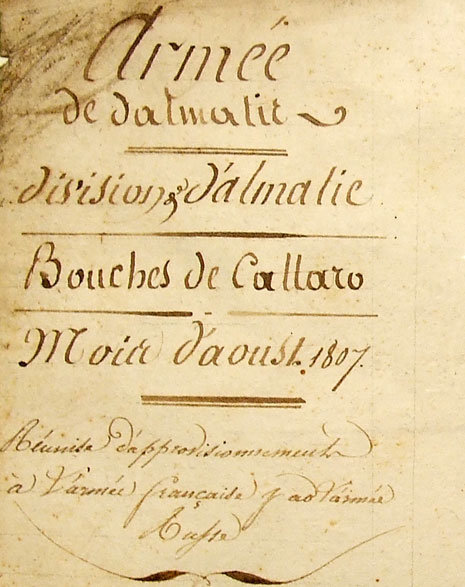 Armée
de dalmatie
division d'dalmatie
Bouches de Cattaro
Mois d'aoust. 1807.
d'approvisionnement
à l'armée française l'armée
Russe